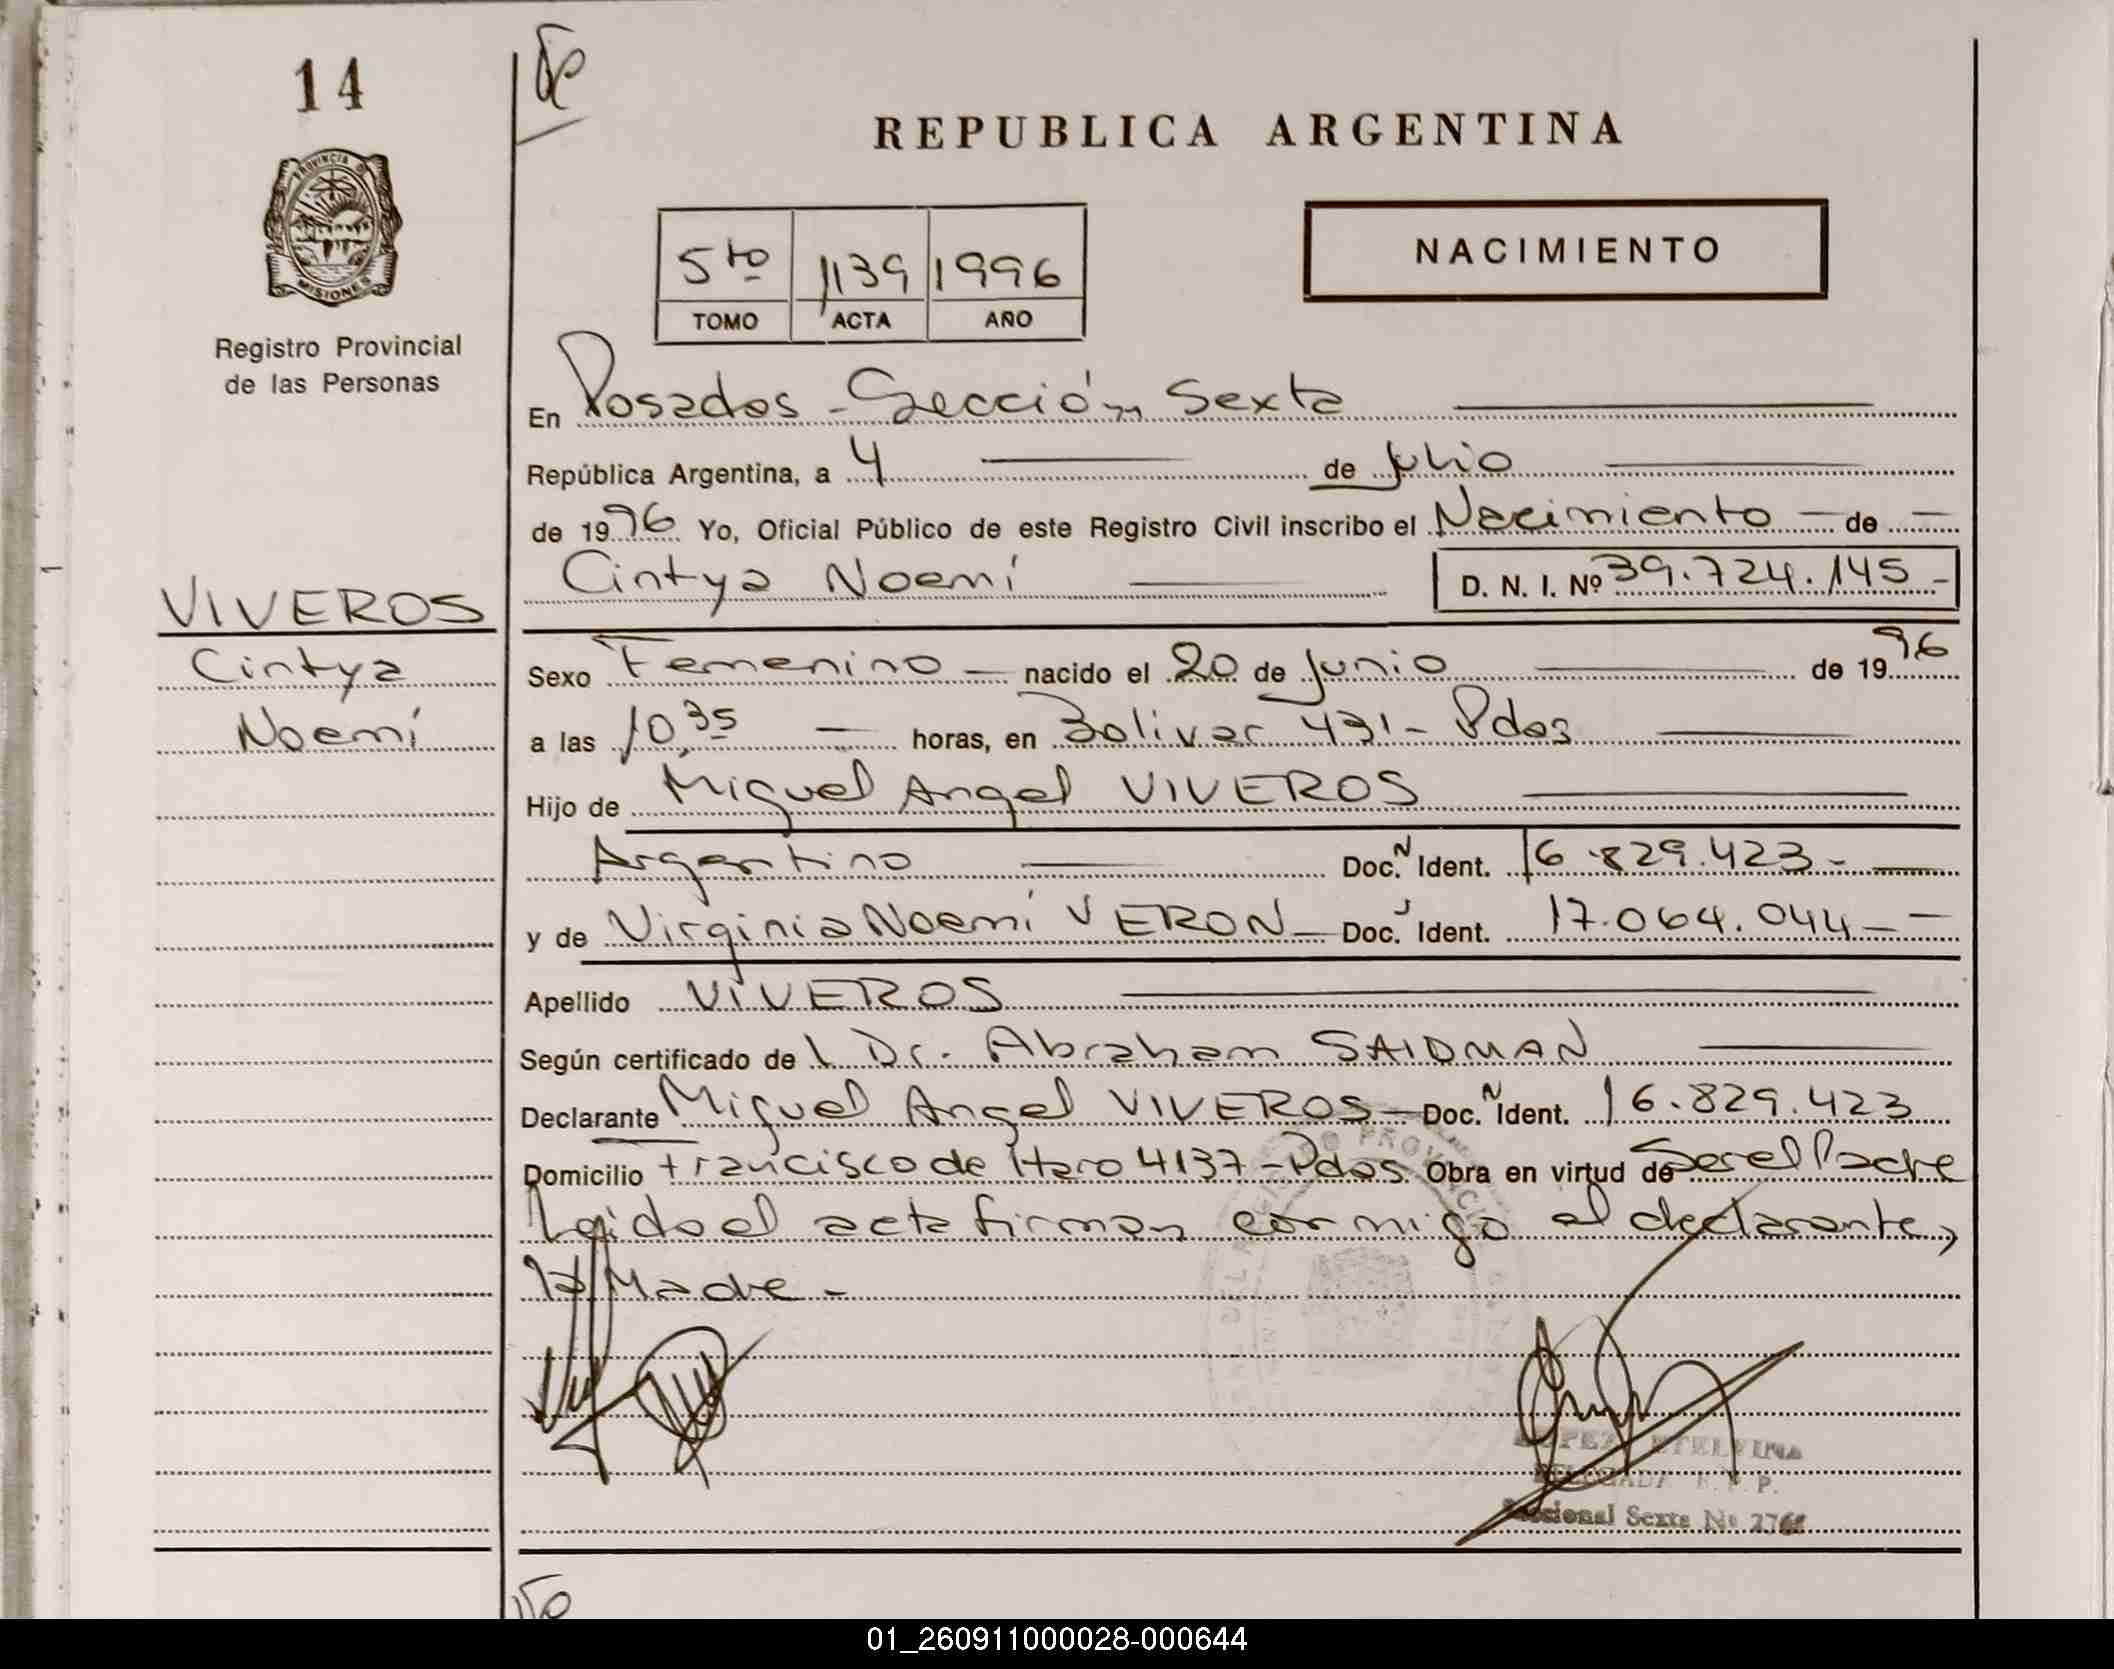 14
REPUBLICA ARGENTINA
PROVINCIA DE
MISIONES
Registro Provincial
de las Personas
5to 1139 1996
TOMO ACTA AÑO
NACIMIENTO
En Posadas - Sección Sexta
República Argentina, a 4 de Julio
de 1996 Yo, Oficial Público de este Registro Civil inscribo el Nacimiento - de -
Cintya Noemí D. N. I. Nº 39.724.145 -
VIVEROS
Cintya
Noemí
Sexo Femenino - nacido el 20 de Junio de 1996
a las 10,35 - horas, en Bolivar 431 - Pdas
Hijo de Miguel Angel VIVEROS
Argentino Doc. N Ident. 16.829.423 -
y de Virginia Noemí VERON - Doc. Ident. 17.064.044 -
Apellido VIVEROS
Según certificado de l Dr. Abraham SAIDMAN
Declarante Miguel Angel VIVEROS - Doc. N Ident. 16.829.423
Domicilio Francisco de Haro 4137 - Pdas. Obra en virtud de Ser el Padre
Leida el acta firman conmigo el declarante,
la Madre -
LOPEZ ETELVINA
DELEGADA R. P. P.
Seccional Sexta Nº
01_260911000028-000644